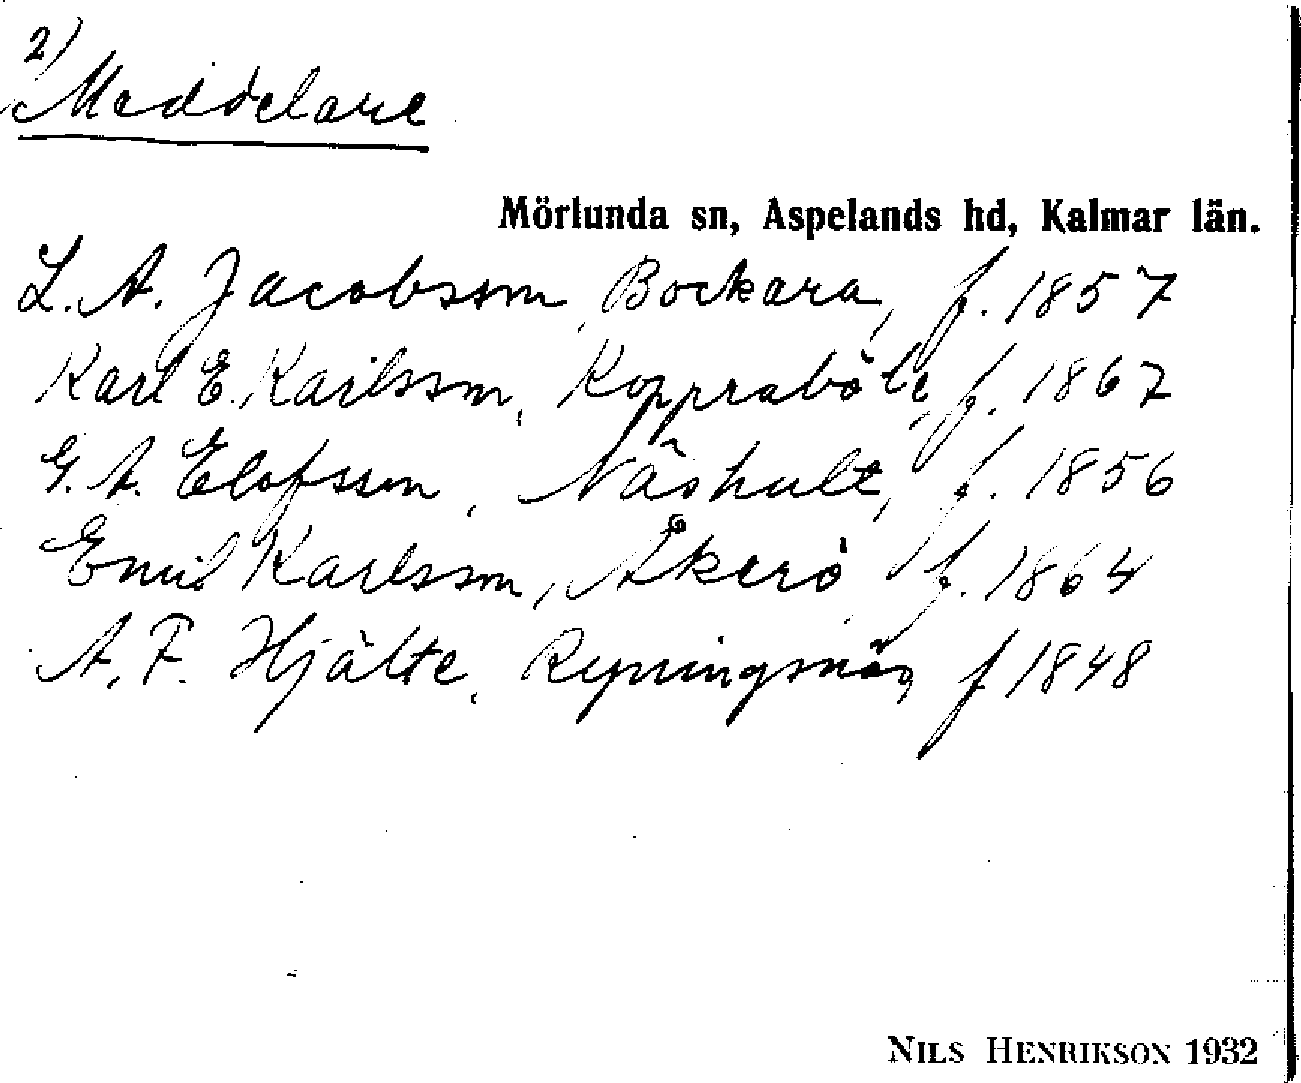 2)
Meddelare
Mörlunda sn, Aspelands hd, Kalmar län.
L. A. Jacobsson, Bockara, f. 1857
Karl E. Karlsson, Koppraböle, f. 1867
G. A. Elofsson, Näshult, f. 1856
Emil Karlsson, Åkerö, f. 1864
A. F. Hjälte, Ryningsnäs, f 1848
NILS HENRIKSON 1932